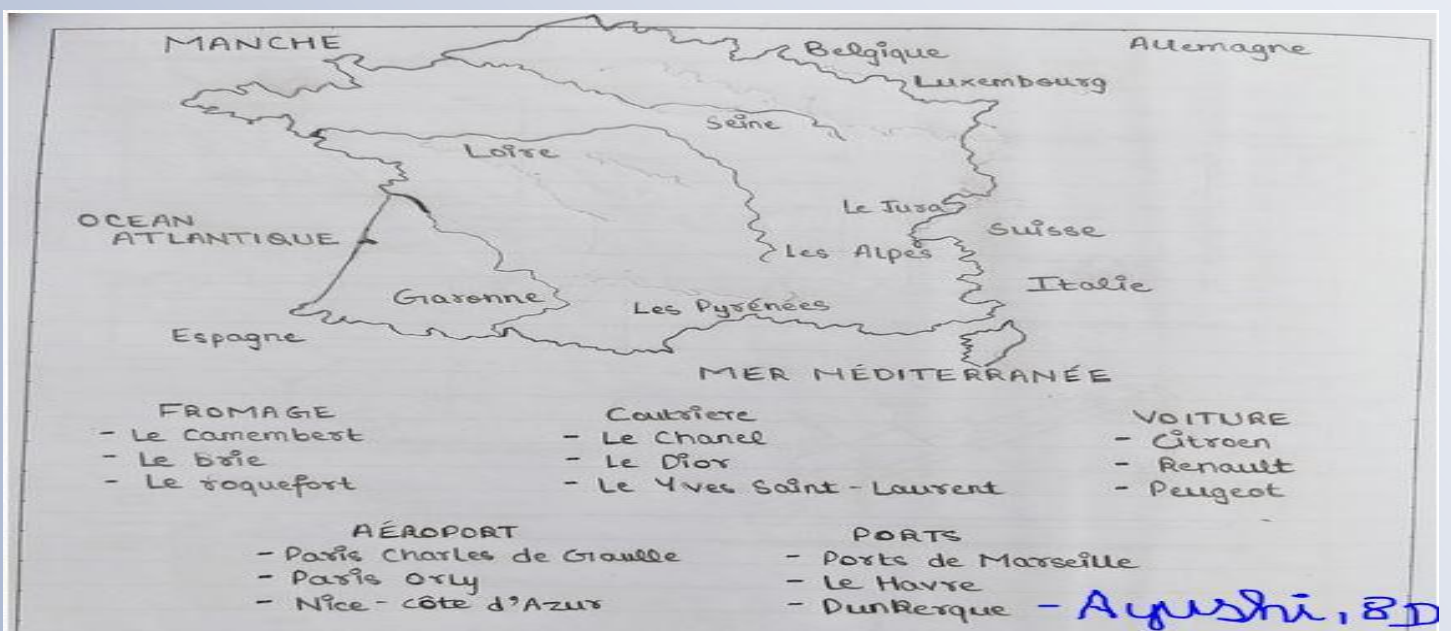 MANCHE
Belgique
Allemagne
Luxembourg
Seine
Loire
Le Jura
OCEAN
ATLANTIQUE
Suisse
Les Alpes
Italie
Garonne
Les Pyrénées
Espagne
MER MÉDITERRANÉE
FROMAGE
- Le Camembert
- Le brie
- Le roquefort
Coutriere
- Le Chanel
- Le Dior
- Le Yves Saint-Laurent
VOITURE
- Citroen
- Renault
- Peugeot
AÉROPORT
- Paris Charles de Giaulle
- Paris Orly
- Nice-côte d'Azur
PORTS
- Ports de Marseille
- Le Havre
- Dunkerque
- Ayushi, 8D